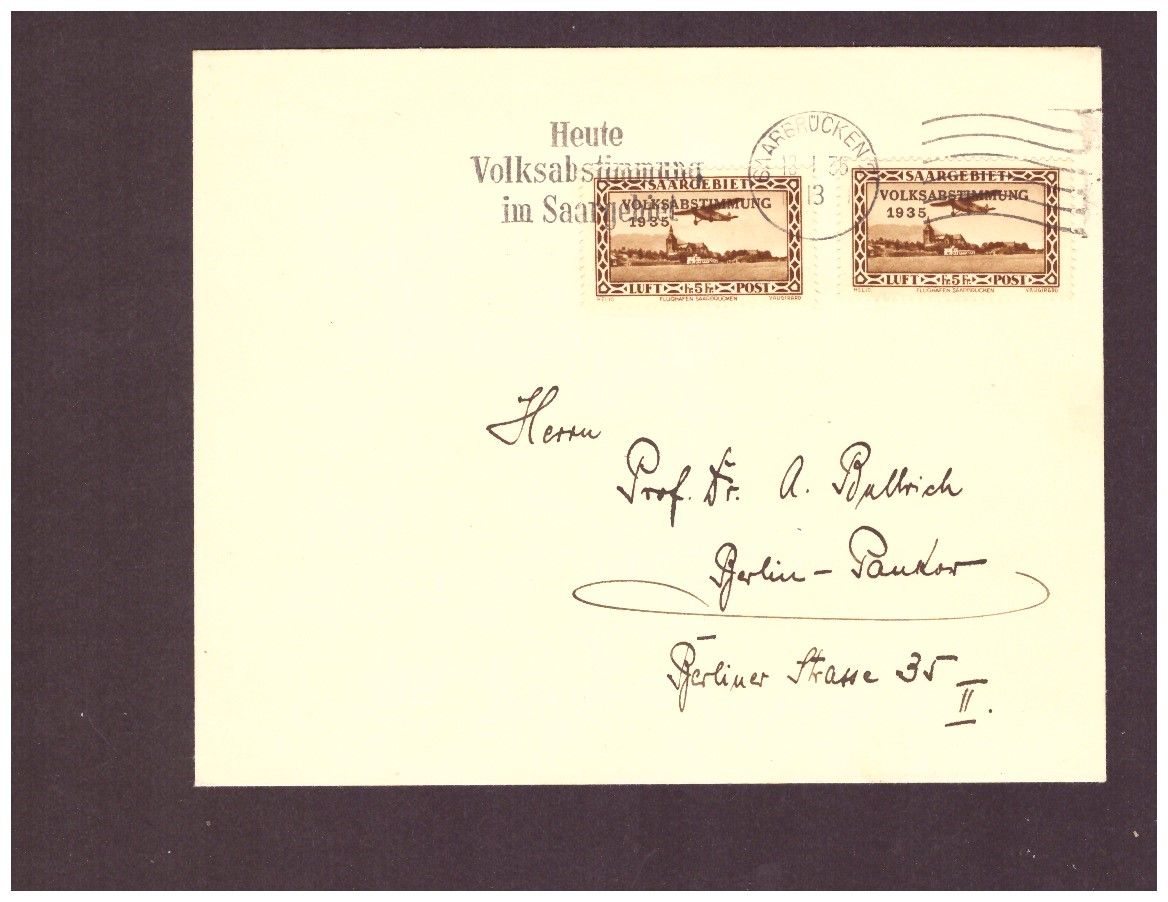 Heute
Volksabstimmung
im Saargebiet
SAARBRÜCKEN
13
SAARGEBIET
VOLKSABSTIMMUNG
1935
LUFT Fr. 5 Fr. POST
HELIO FLUGHAFEN SAARBRÜCKEN VAUGIRARD
SAARGEBIET
VOLKSABSTIMMUNG
1935
LUFT Fr. 5 Fr. POST
HELIO FLUGHAFEN SAARBRÜCKEN VAUGIRARD
Herrn
Prof. Dr. A. Bullrich
Berlin - Pankow
Berliner Strasse 35
II.